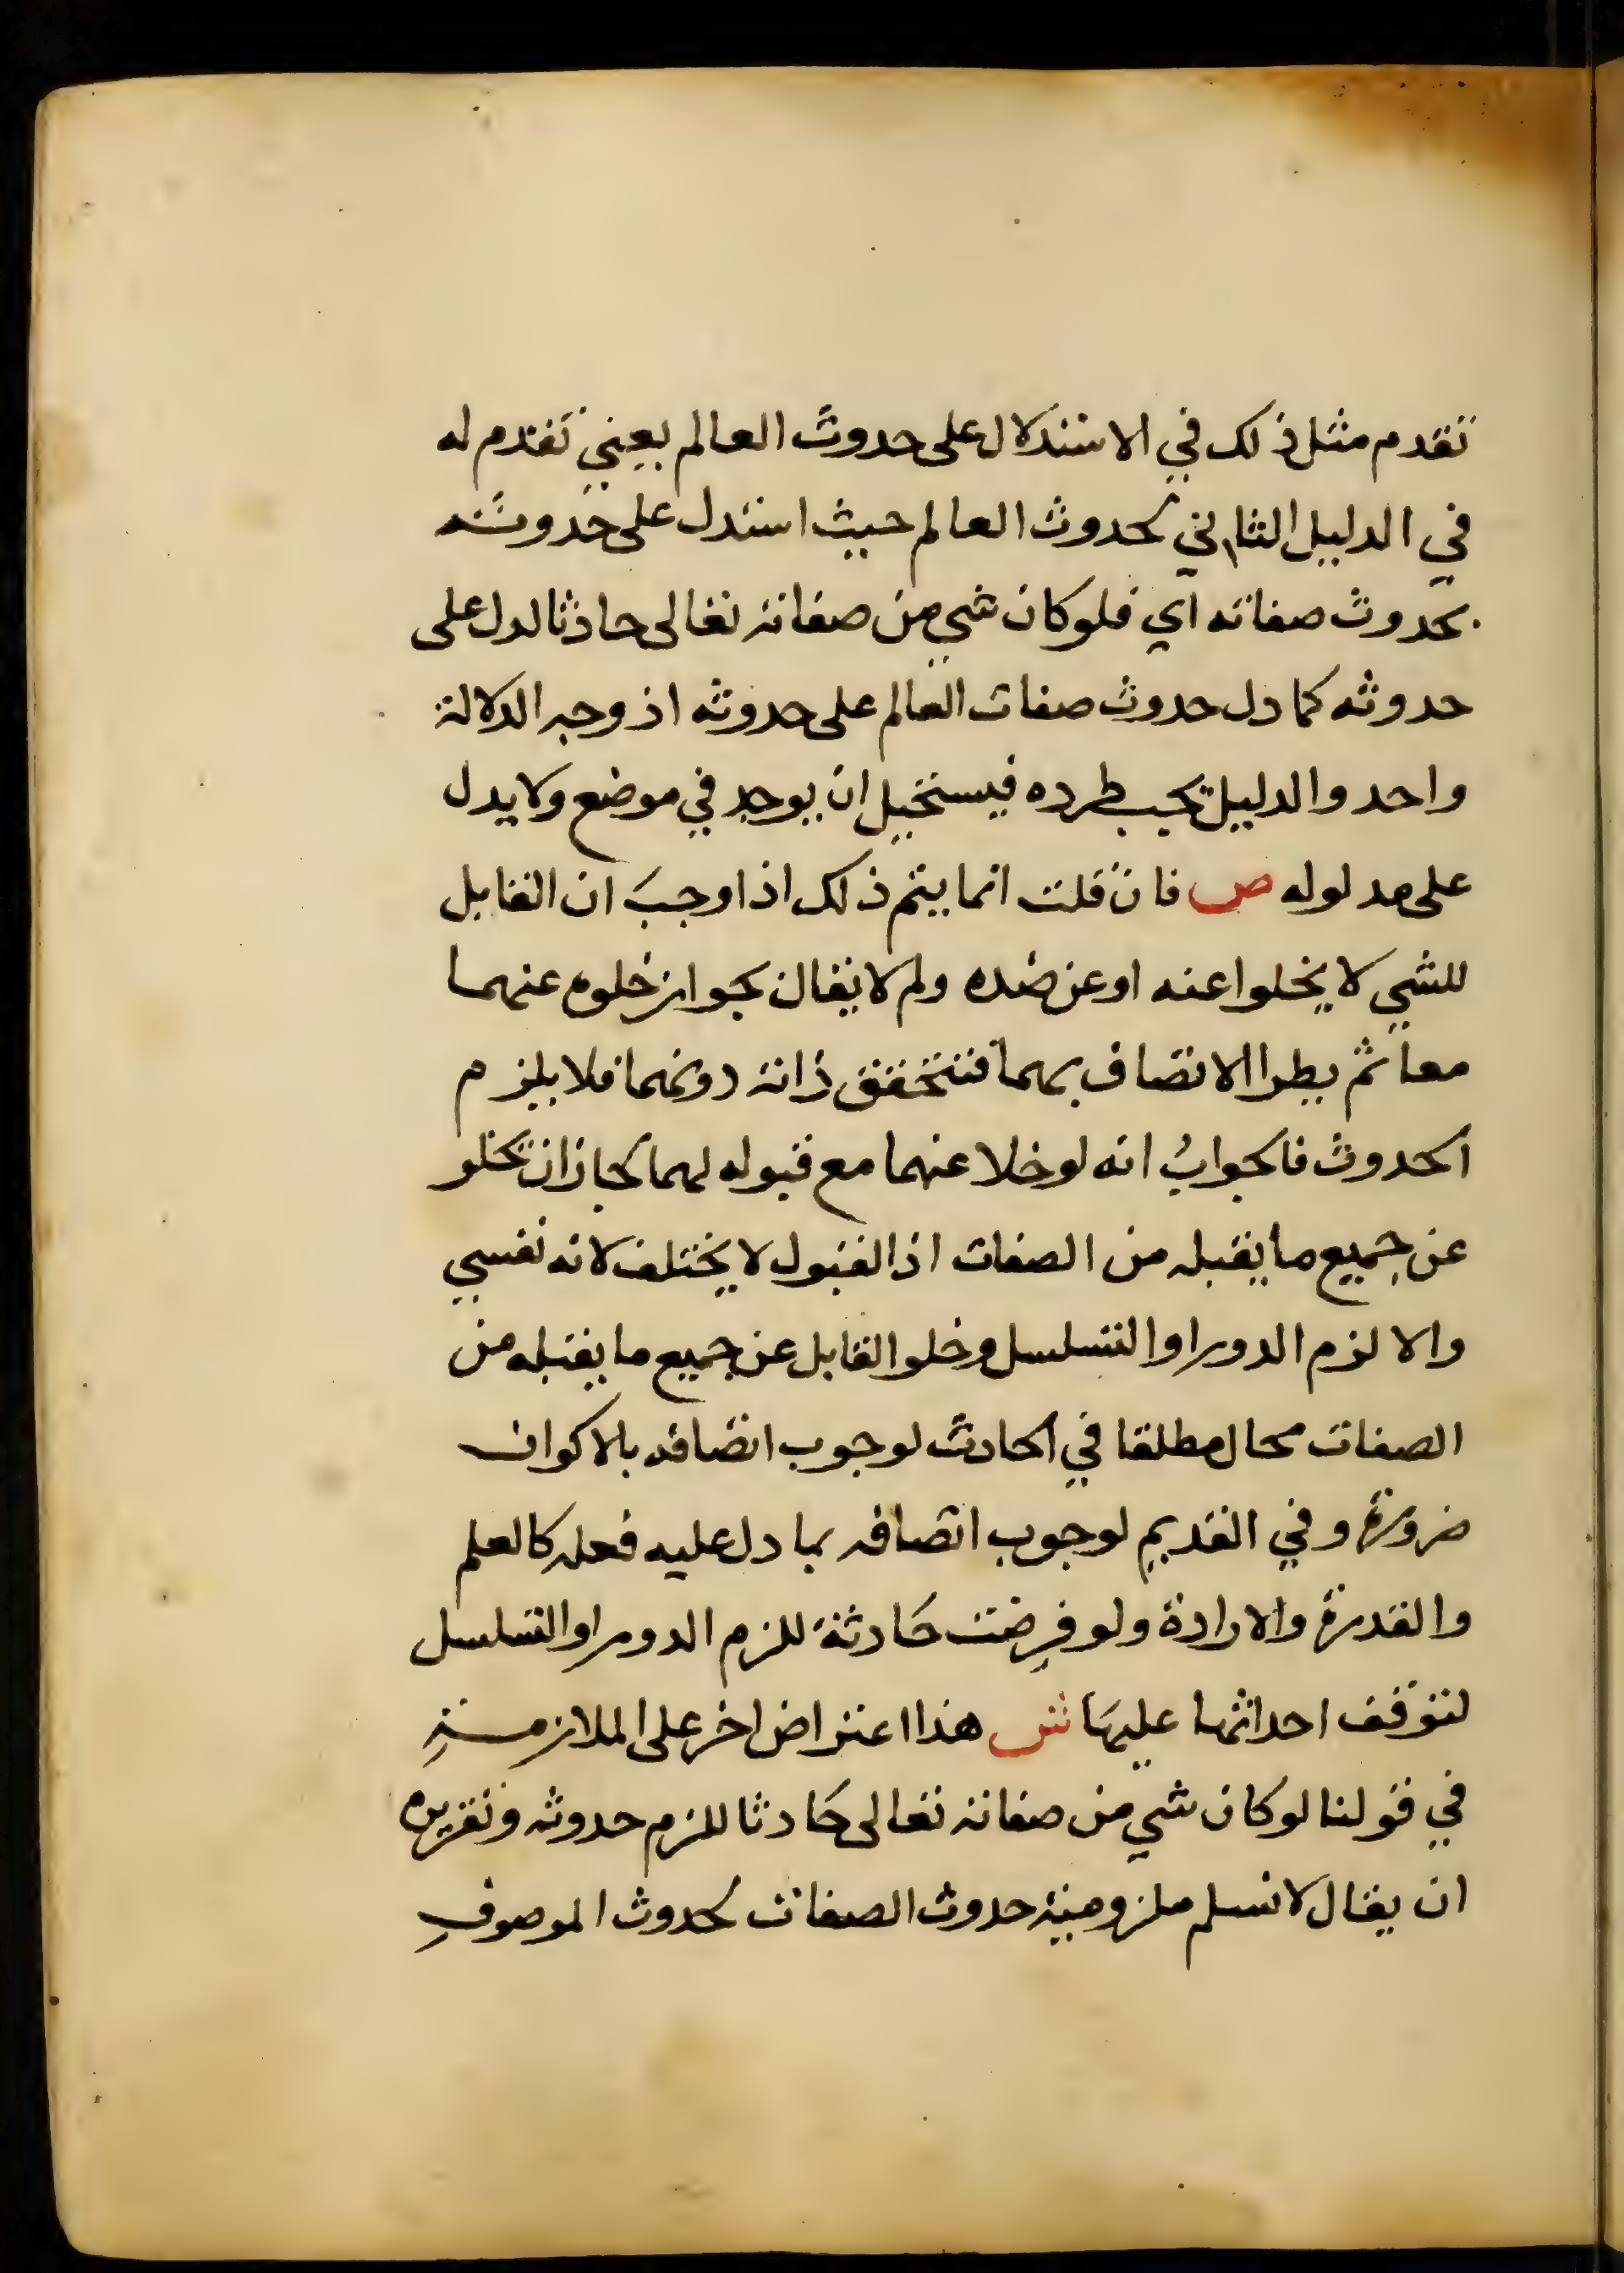 تقدم مثل ذلك في الاستدلال على حدوث العالم يعني تقدم له
في الدليل الثاني لحدوث العالم حيث استدل على حدوثه
بحدوث صفاته اي فلو كان شي من صفاته تعالى حادثا لدل على
حدوثه كما دل حدوث صفات العالم على حدوثه اذ وجه الدلالة
واحد والدليل يجب طرده فيستحيل ان يوجد في موضع ولا يدل
على مدلوله ص فان قلت انما يتم ذلك اذا وجب ان القابل
للشي لا يخلوا عنه او عن ضده ولم لا يقال بجواز خلوه عنهما
معا ثم يطرا الاتصاف بهما فتتحقق ذاته دونهما فلا يلزم
الحدوث فالجواب انه لو خلا عنهما مع قبوله لهما لجاز ان تخلو
عن جميع ما يقبله من الصفات اذ القبول لا يختلف لانه نفسي
والا لزم الدور او التسلسل وخلو القابل عن جميع ما يقبله من
الصفات محال مطلقا في الحادث لوجوب اتصافه بالاكوان
ضرورة وفي القديم لوجوب اتصافه بما دل عليه فعله كالعلم
والقدرة والارادة ولو فرضت حادثة للزم الدور او التسلسل
لتوقف احداثها عليها ش هذا اعتراض اخر على الملازمة
في قولنا لو كان شي من صفاته تعالى حادثا للزم حدوثه وتقريره
ان يقال لا نسلم ملزومية حدوث الصفات لحدوث الموصوف